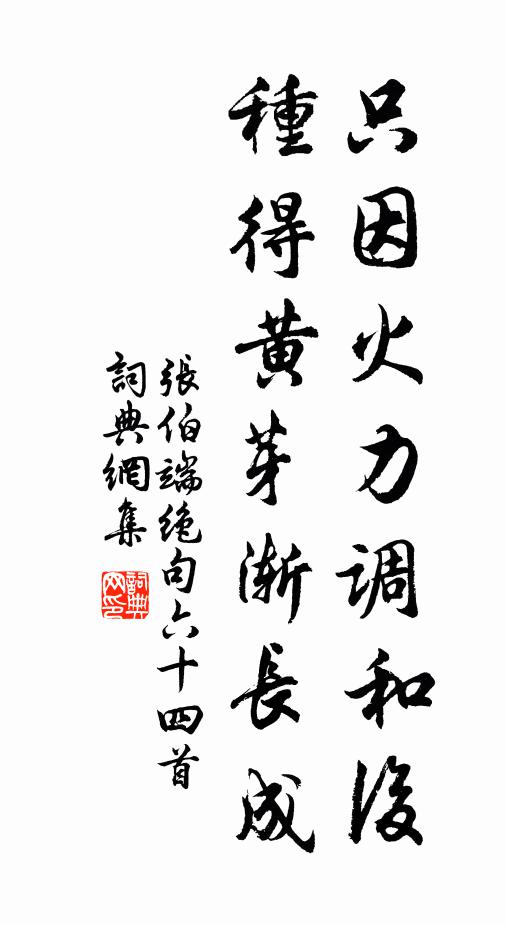 只因火力调和後
種得黄芽渐長成
張伯端绝句六十四首
詞典網集
詞典网印